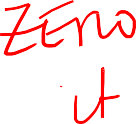 Zero
it